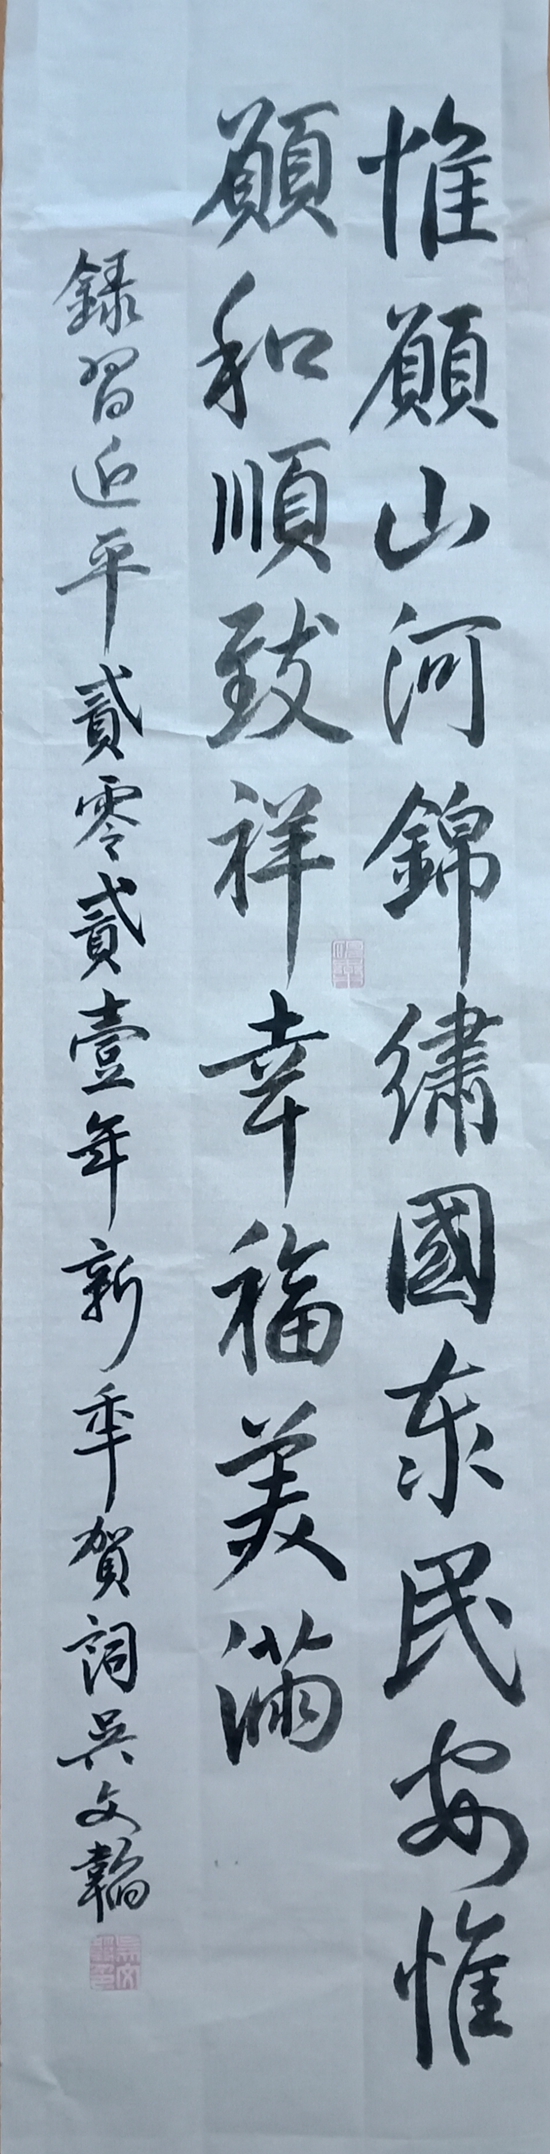 惟願山河錦繡國泰民安惟
願和順致祥幸福美滿
錄習近平貳零貳壹年新年賀詞吳文韜